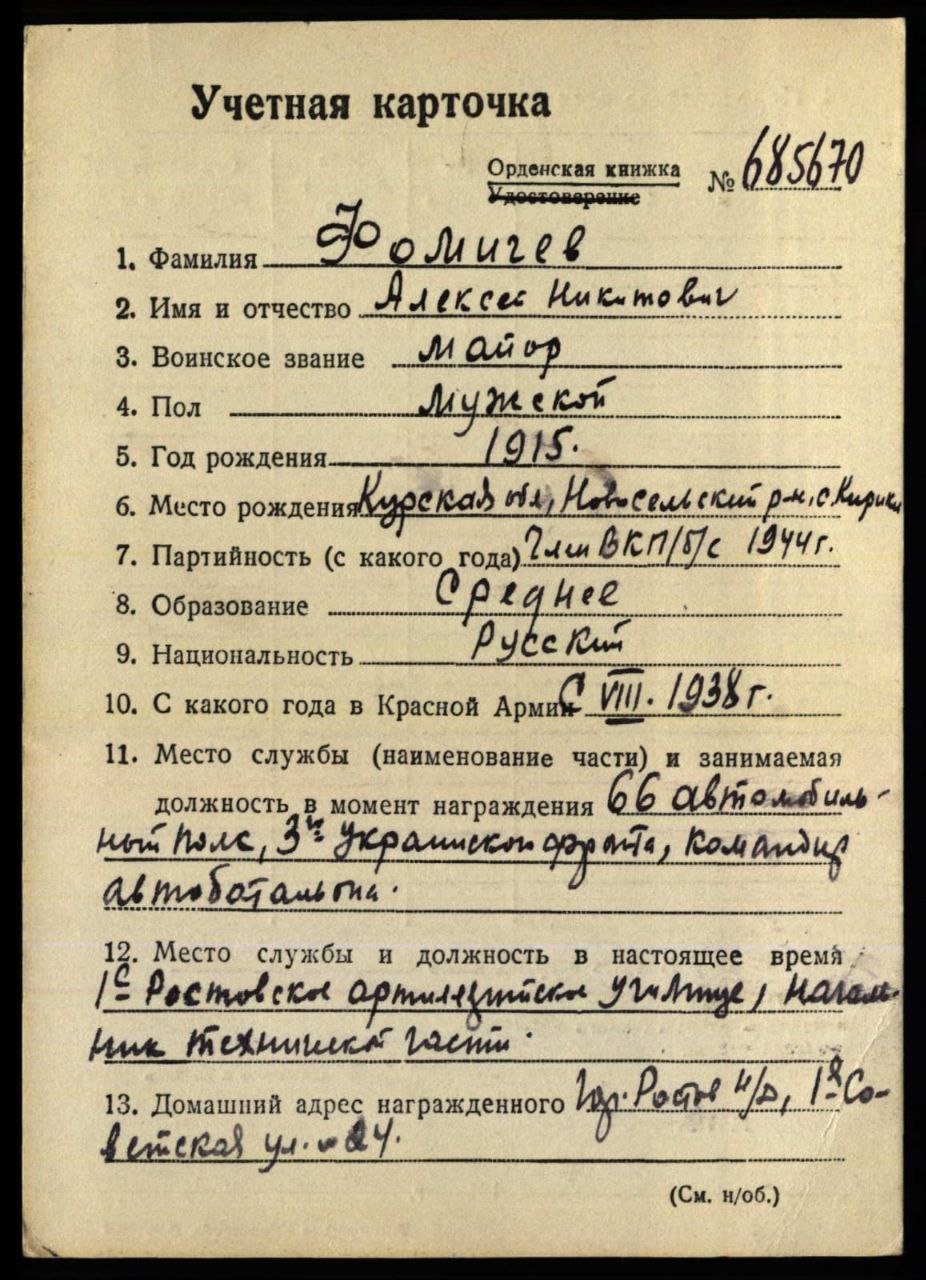 Учетная карточка
Орденская книжка № 685670
Удостоверение
1. Фамилия Фомичев
2. Имя и отчество Алексей Никитович
3. Воинское звание майор
4. Пол Мужской
5. Год рождения 1915.
6. Место рождения Курская обл, Новосельский р-н, с.
7. Партийность (с какого года) Член ВКП/б/ с 1944 г.
8. Образование Среднее
9. Национальность Русский
10. С какого года в Красной Армии С VIII. 1938 г.
11. Место службы (наименование части) и занимаемая
должность в момент награждения 66 автомобиль-
ный полк, 3го Украинского фронта, командир
автобатальона.
12. Место службы и должность в настоящее время
1е Ростовское артилерийское училище, Началь-
ник технической части.
13. Домашний адрес награжденного гор. Ростов н/Д, 1я Со-
ветская ул. 24.
(См. н/об.)